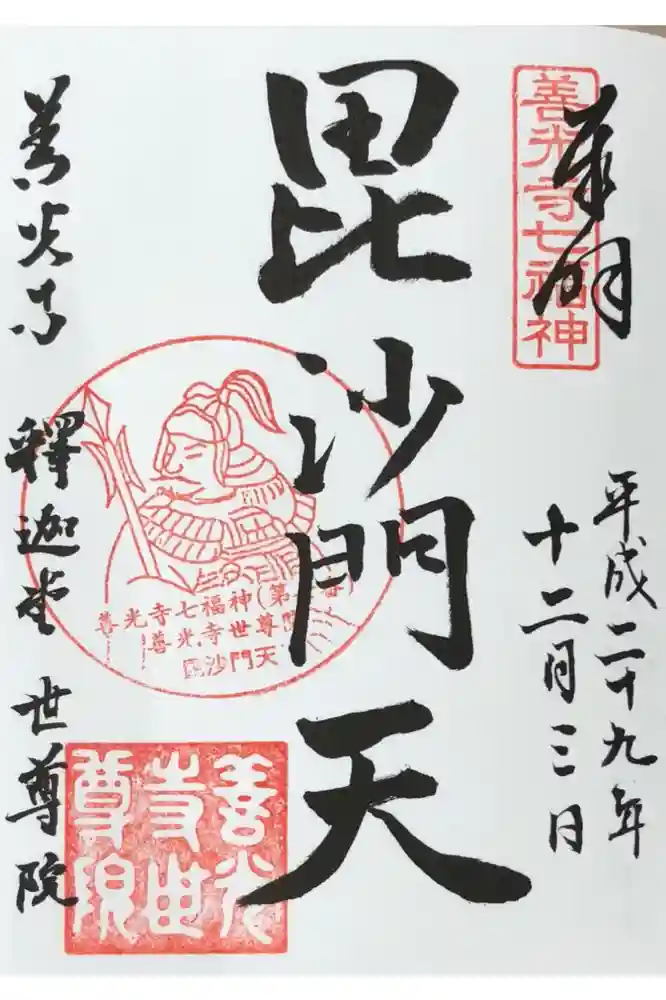 奉拝
善光寺七福神
平成二十九年
十二月三日
毘沙門天
善光寺七福神(第
善光寺世尊院
毘沙門天
善光寺世尊院
善光寺 釋迦堂 世尊院